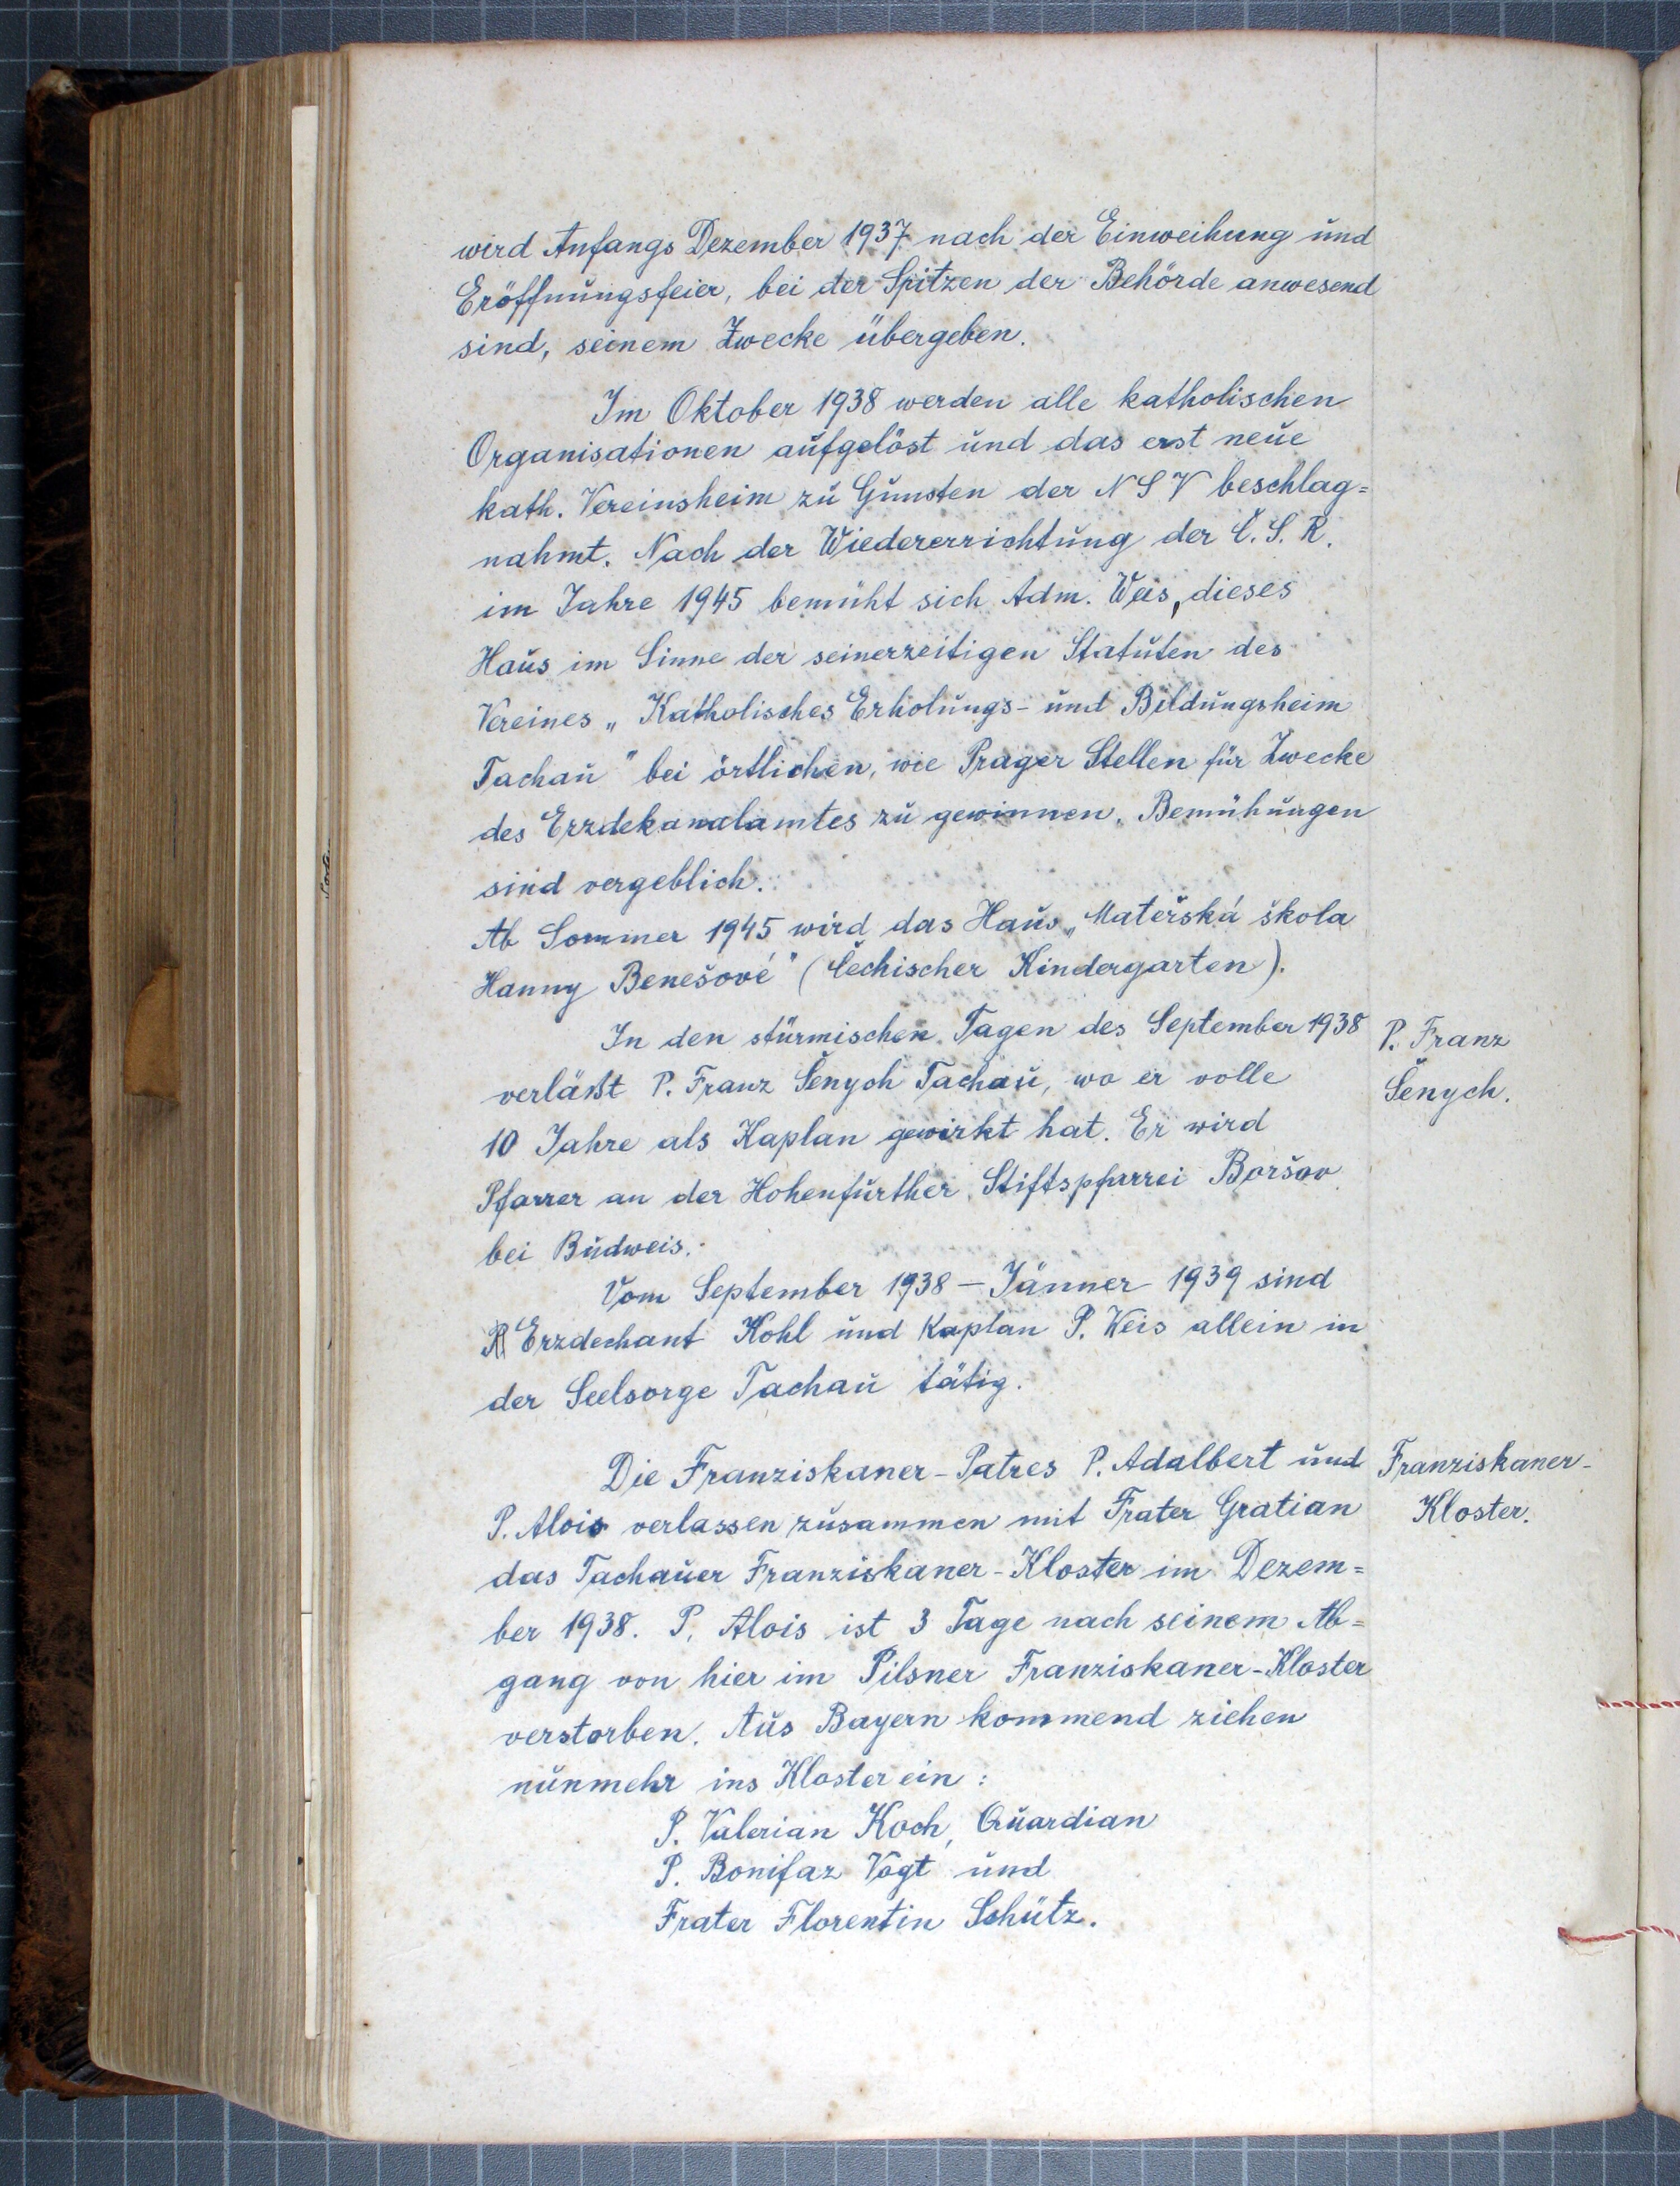 wird Anfangs Dezember 1937 nach der Einweihung und
Eröffnungsfeier, bei der Spitzen der Behörde anwesend
sind, seinem Zwecke übergeben.
Im Oktober 1938 werden alle katholischen
Organisationen aufgelöst und das erst neue
kath. Vereinsheim zu Gunsten der NSV beschlag=
nahmt. Nach der Wiedererrichtung der Č. S. R.
im Jahre 1945 bemüht sich Adm. Weis, dieses
Haus im Sinne der seinerzeitigen Statuten des
Vereines „Katholisches Erholungs- und Bildungsheim
Tachau" bei örtlichen, wie Prager Stellen für Zwecke
des Erzdekanalamtes zu gewinnen. Bemühungen
sind vergeblich.
Ab Sommer 1945 wird das Haus „Mateřská škola
Hanny Benešové" (čechischer Kindergarten).
In den stürmischen Tagen des September 1938
verläßt P. Franz Šenych Tachau, wo er volle
10 Jahre als Kaplan gewirkt hat. Er wird
Pfarrer an der Hohenfurther Stiftspfarrei Boršov
bei Budweis.
P. Franz
Šenych.
Vom September 1938 – Jänner 1939 sind
Erzdechant Kohl und Kaplan P. Weis allein in
der Seelsorge Tachau tätig.
Die Franziskaner-Patres P. Adalbert und
P. Alois verlassen zusammen mit Frater Gratian
das Tachauer Franziskaner-Kloster im Dezem=
ber 1938. P. Alois ist 3 Tage nach seinem Ab=
gang von hier im Pilsner Franziskaner-Kloster
verstorben. Aus Bayern kommend ziehen
nunmehr ins Kloster ein:
Franziskaner-
Kloster.
P. Valerian Koch, Quardian
P. Bonifaz Vogt und
Frater Florentin Schütz.